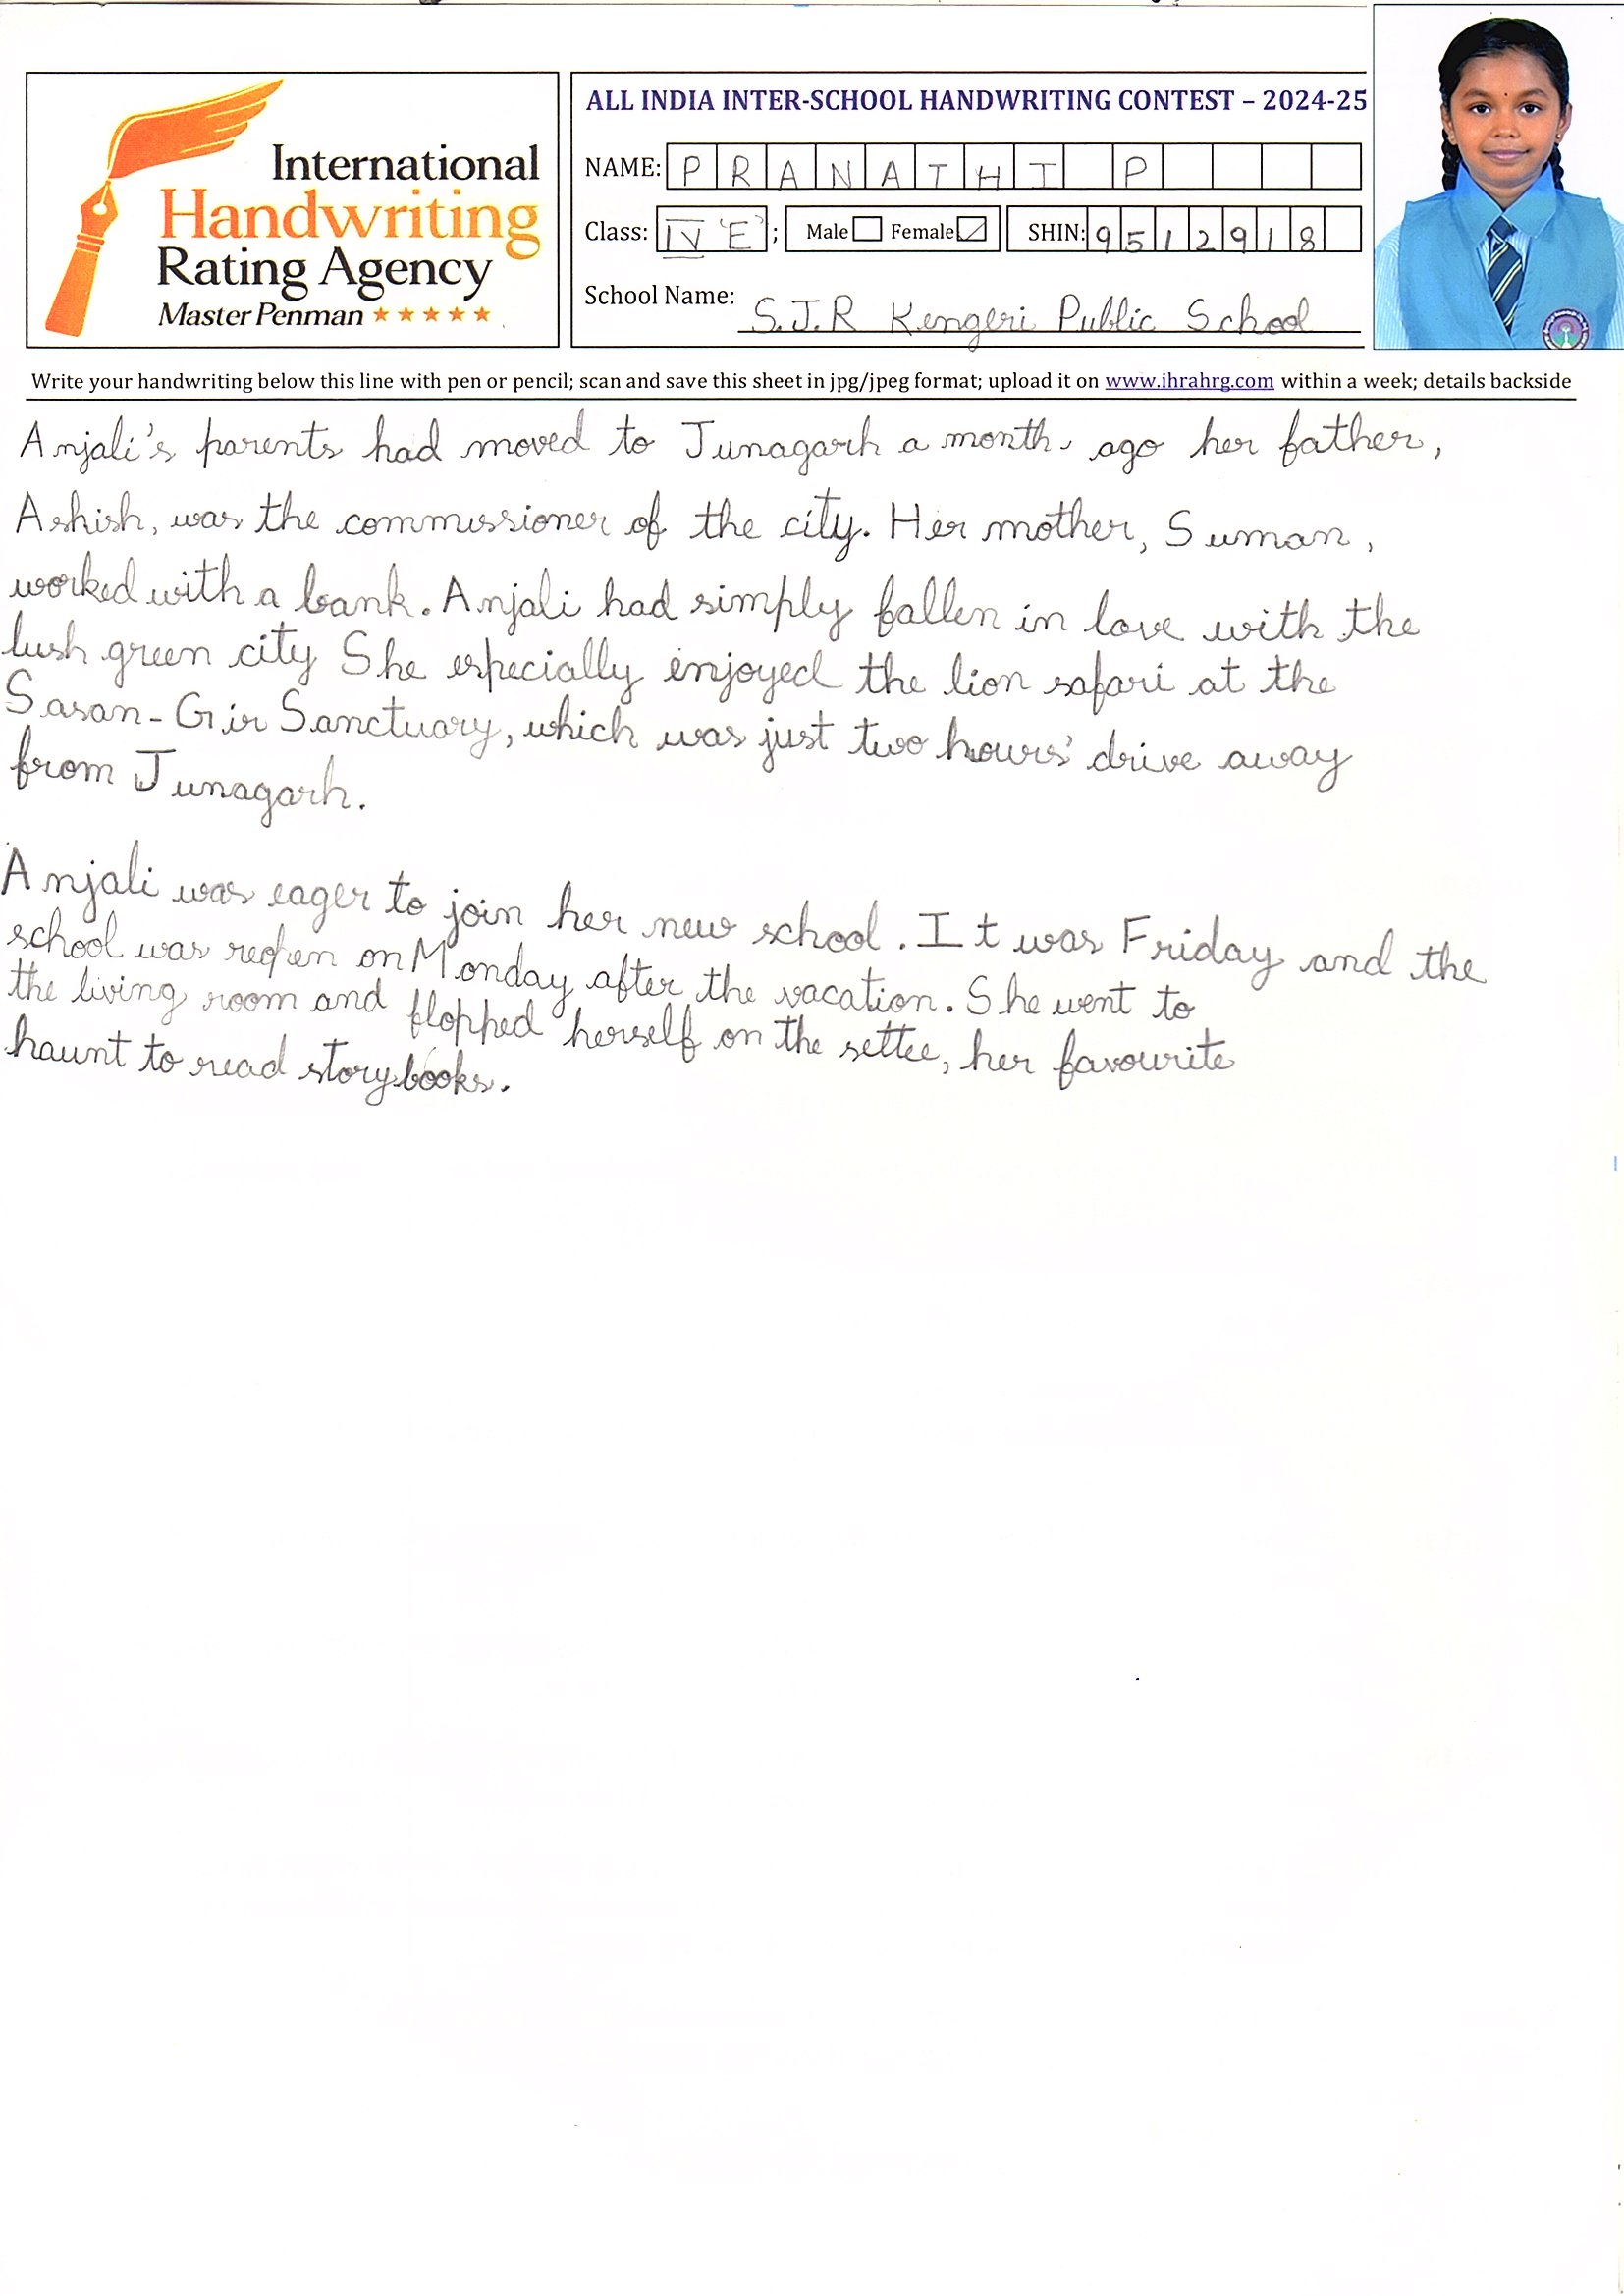 International
Handwriting
Rating Agency
Master Penman
ALL INDIA INTER-SCHOOL HANDWRITING CONTEST – 2024-25
NAME: PRANATHI P
Class: IV 'E' ; Male Female SHIN: 9512918
School Name: S.J.R Kengeri Public School
Write your handwriting below this line with pen or pencil; scan and save this sheet in jpg/jpeg format; upload it on www.ihrahrg.com within a week; details backside
Anjali's parents had moved to Junagarh a month, ago her father,
Ashish, was the commissioner of the city. Her mother, Suman,
worked with a bank. Anjali had simply fallen in love with the
lush green city She especially enjoyed the lion safari at the
Sasan-Gir Sanctuary, which was just two hours' drive away
from Junagarh.
Anjali was eager to join her new school. It was Friday and the
school was reopen on Monday after the vacation. She went to
the living room and flopped herself on the settee, her favourite
haunt to read storybooks.